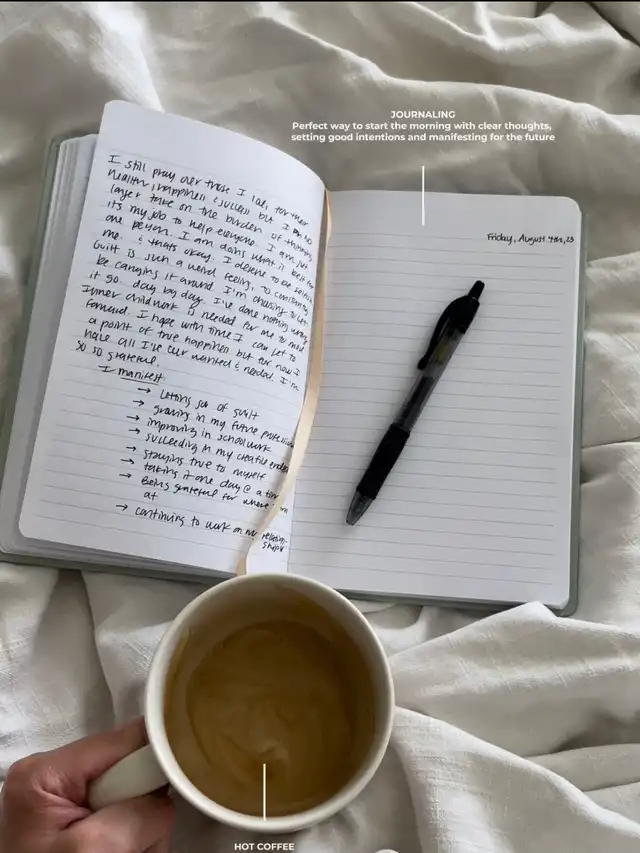 JOURNALING
Perfect way to start the morning with clear thoughts,
setting good intentions and manifesting for the future
I still pray over those I love, for their
health, happiness & success but I am no
longer take on the burden of thinking
its my job to help everyone. I am just
one person. I am doing what is best for
me. & thats okay. I deserve to be selfish.
Guilt is such a weird feeling, to constantly
be carrying it around. I'm choosing to let
it go. day by day. I've done nothing wrong
Inner child work is needed for me to move
forward. I hope with time I can get to
a point of true happiness but for now I
have all I've ever wanted & needed. I'm
so so grateful.
I manifest
→ Letting go of guilt
→ growing in my future profession
→ improving in schoolwork
→ succeeding in my creative
→ staying true to myself
→ taking it one day @ a time
→ Being grateful for where I'm
at
→ continuing to work on my relation-
ships
Friday, August 4th, 23
HOT COFFEE